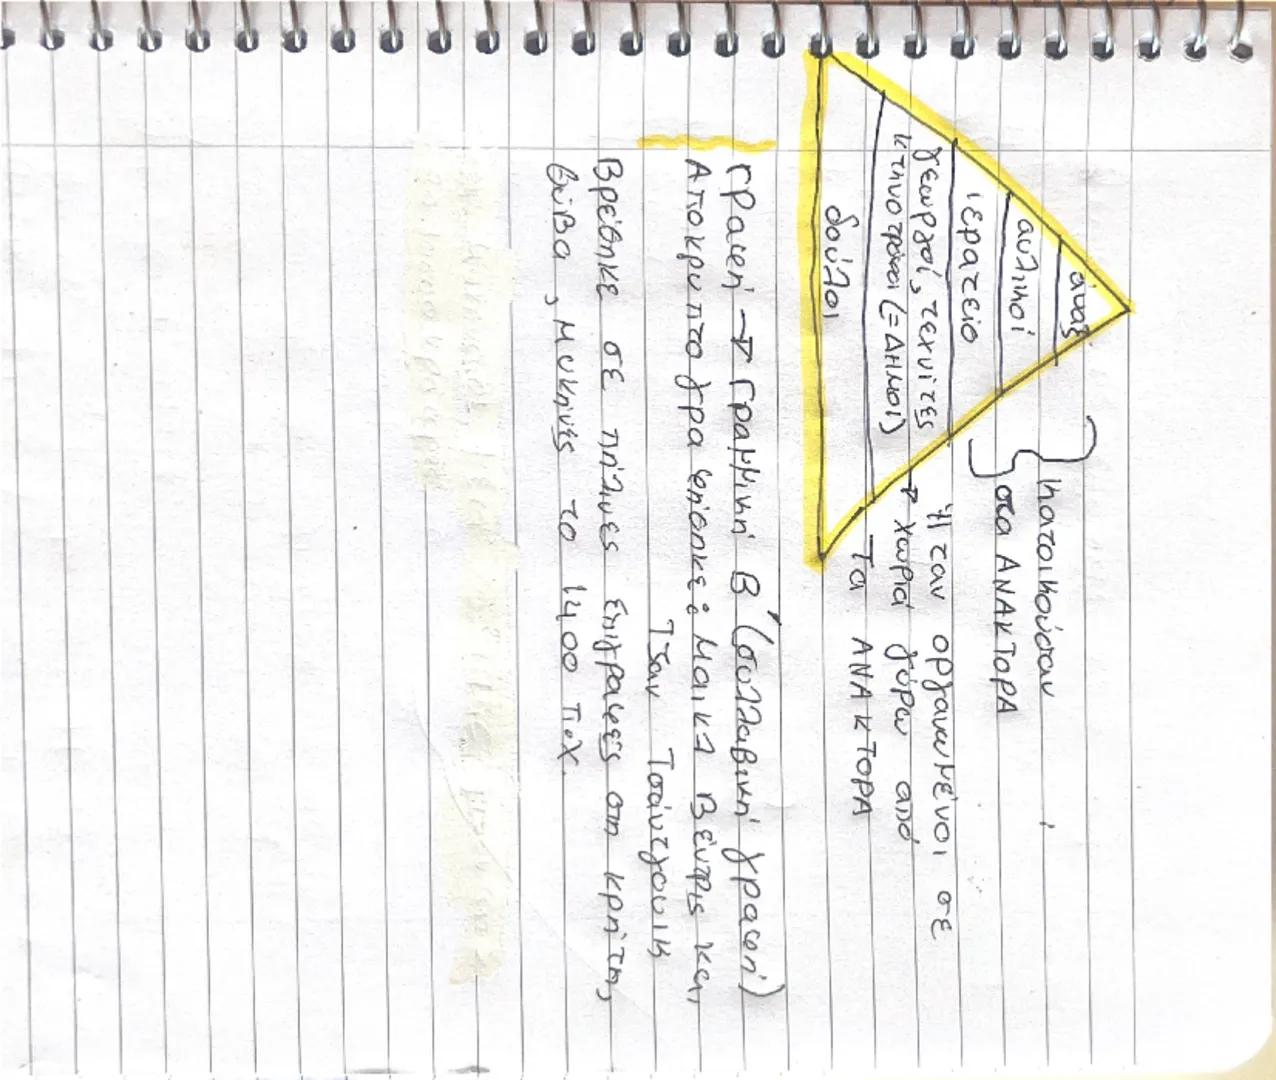 άναξ
αυλικοί
ιερατείο
γεωργοί, τεχνίτες
κτηνοτρόφοι (=ΔΗΜΟΙ)
δούλοι
κατοικούσαν
στα ΑΝΑΚΤΟΡΑ
Ήταν οργανωμένοι σε
→ χωριά γύρω από
Τα ΑΝΑΚΤΟΡΑ
Γραφή → Γραμμική Β΄ (συλλαβική γραφή)
Αποκρυπτογραφήθηκε: Μαικλ Βέντρις και
Τζον Τσάντγουικ
Βρέθηκε σε πήλινες επιγραφές στη Κρήτη,
Θήβα, Μυκήνες το 1400 π.Χ.